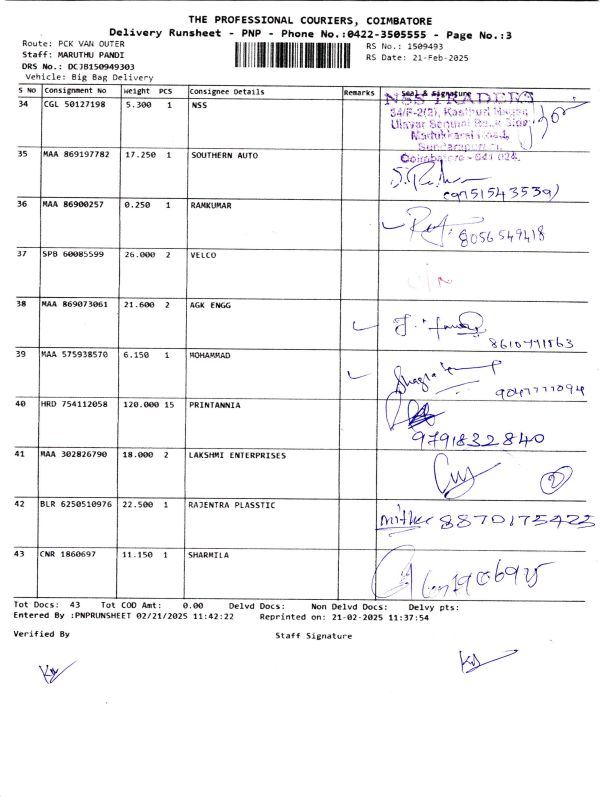 THE PROFESSIONAL COURIERS, COIMBATORE
Delivery Runsheet - PNP - Phone No.:0422-3505555 - Page No.:3
Route: PCK VAN OUTER
RS No.: 1509493
Staff: MARUTHU PANDI
RS Date: 21-Feb-2025
DRS No.: DCJB150949303
Vehicle: Big Bag Delivery
S No Consignment No Weight PCS Consignee Details Remarks Seal & Signature
34 CGL 50127198 5.300 1 NSS
NSS TRADERS
34/F-2(2), Kasthuri Nagar
Coimbatore - 641 024.
35 MAA 869197782 17.250 1 SOUTHERN AUTO
36 MAA 86900257 0.250 1 RAMKUMAR
8056549418
37 SPB 60085599 26.000 2 VELCO
38 MAA 869073061 21.600 2 AGK ENGG
39 MAA 575938570 6.150 1 MOHAMMAD
40 HRD 754112058 120.000 15 PRINTANNIA
9791832840
41 MAA 302826790 18.000 2 LAKSHMI ENTERPRISES
2
42 BLR 6250510976 22.500 1 RAJENTRA PLASSTIC
8870175423
43 CNR 1860697 11.150 1 SHARMILA
Tot Docs: 43 Tot COD Amt: 0.00 Delvd Docs: Non Delvd Docs: Delvy pts:
Entered By :PNPRUNSHEET 02/21/2025 11:42:22 Reprinted on: 21-02-2025 11:37:54
Verified By Staff Signature